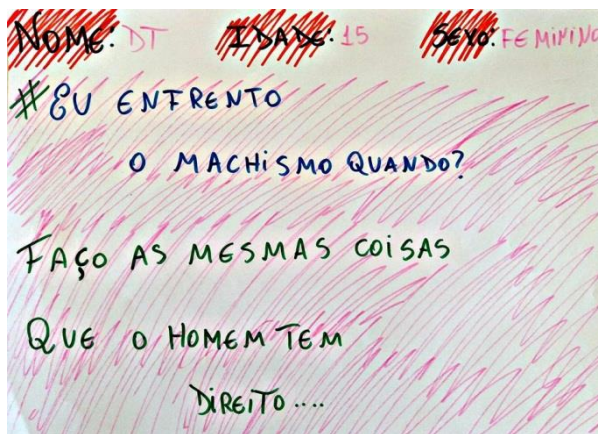 NOME: DT IDADE: 15 SEXO: FEMININO
#EU ENFRENTO
O MACHISMO QUANDO?
FAÇO AS MESMAS COISAS
QUE O HOMEM TEM
DIREITO....